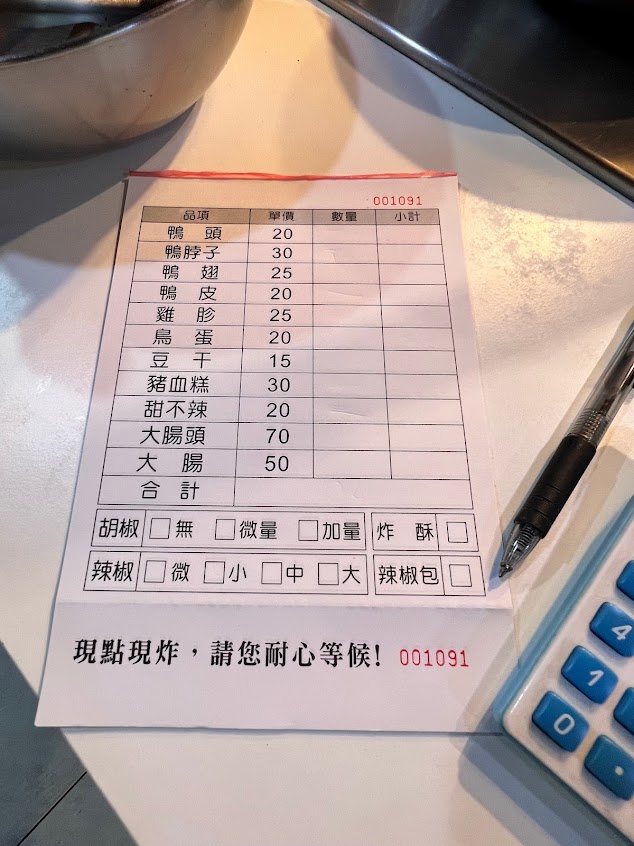 001091
品項 單價 數量 小計
鴨頭 20
鴨脖子 30
鴨翅 25
鴨皮 20
雞胗 25
鳥蛋 20
豆干 15
豬血糕 30
甜不辣 20
大腸頭 70
大腸 50
合計
胡椒 無 微量 加量 炸酥
辣椒 微 小 中 大 辣椒包
現點現炸，請您耐心等候! 001091
4
1
0
.